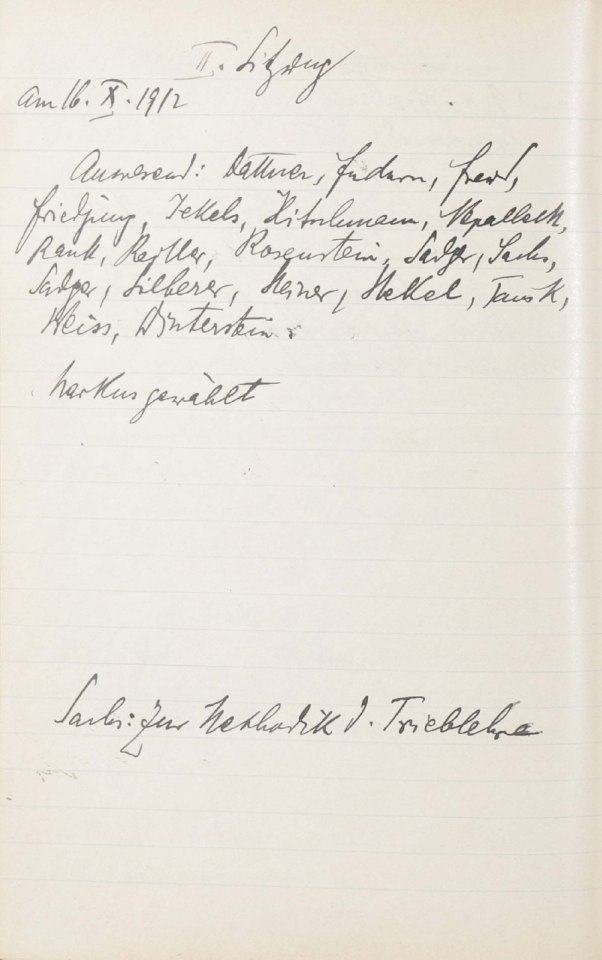 II. Sitzung
am 16. X. 1912
Anwesend: Dattner, Federn, Freud,
Friedjung, Jekels, Hitschmann, Nepallek,
Rank, Reitler, Rosenstein, Sadger, Sachs,
Sadger, Silberer, Steiner, Stekel, Tausk,
Weiss, Winterstein.
Markus gewählt
Sachs: Zur Methodik d. Trieblehre